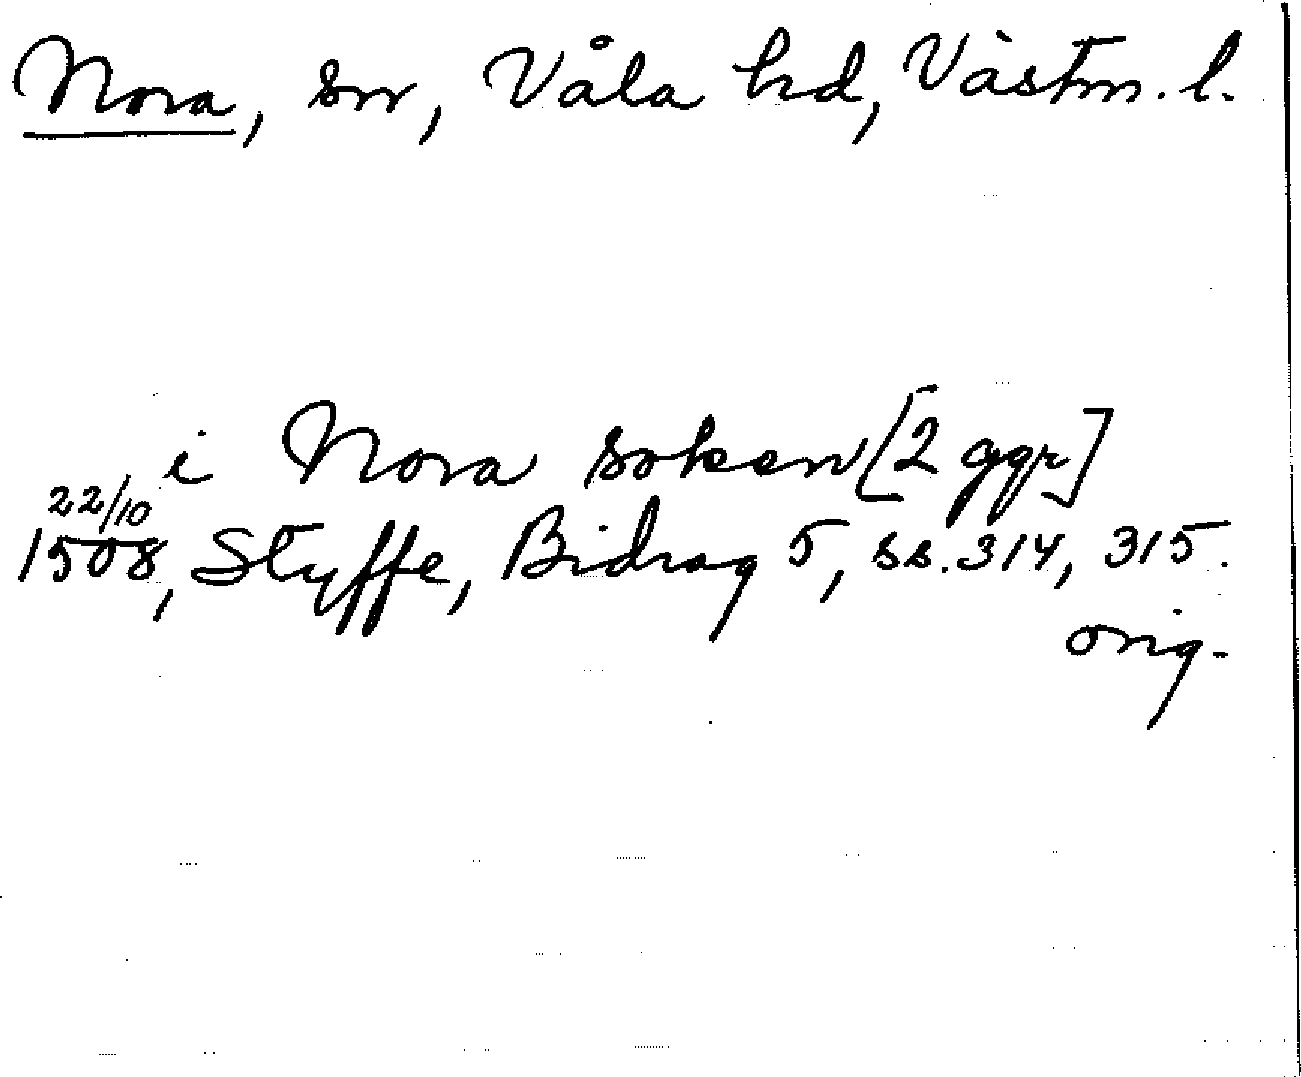 Nora, sn, Våla hd, Västm. l.
i Nora soken [2 ggr]
22/10
1508, Styffe, Bidrag 5, ss. 314, 315.
orig.